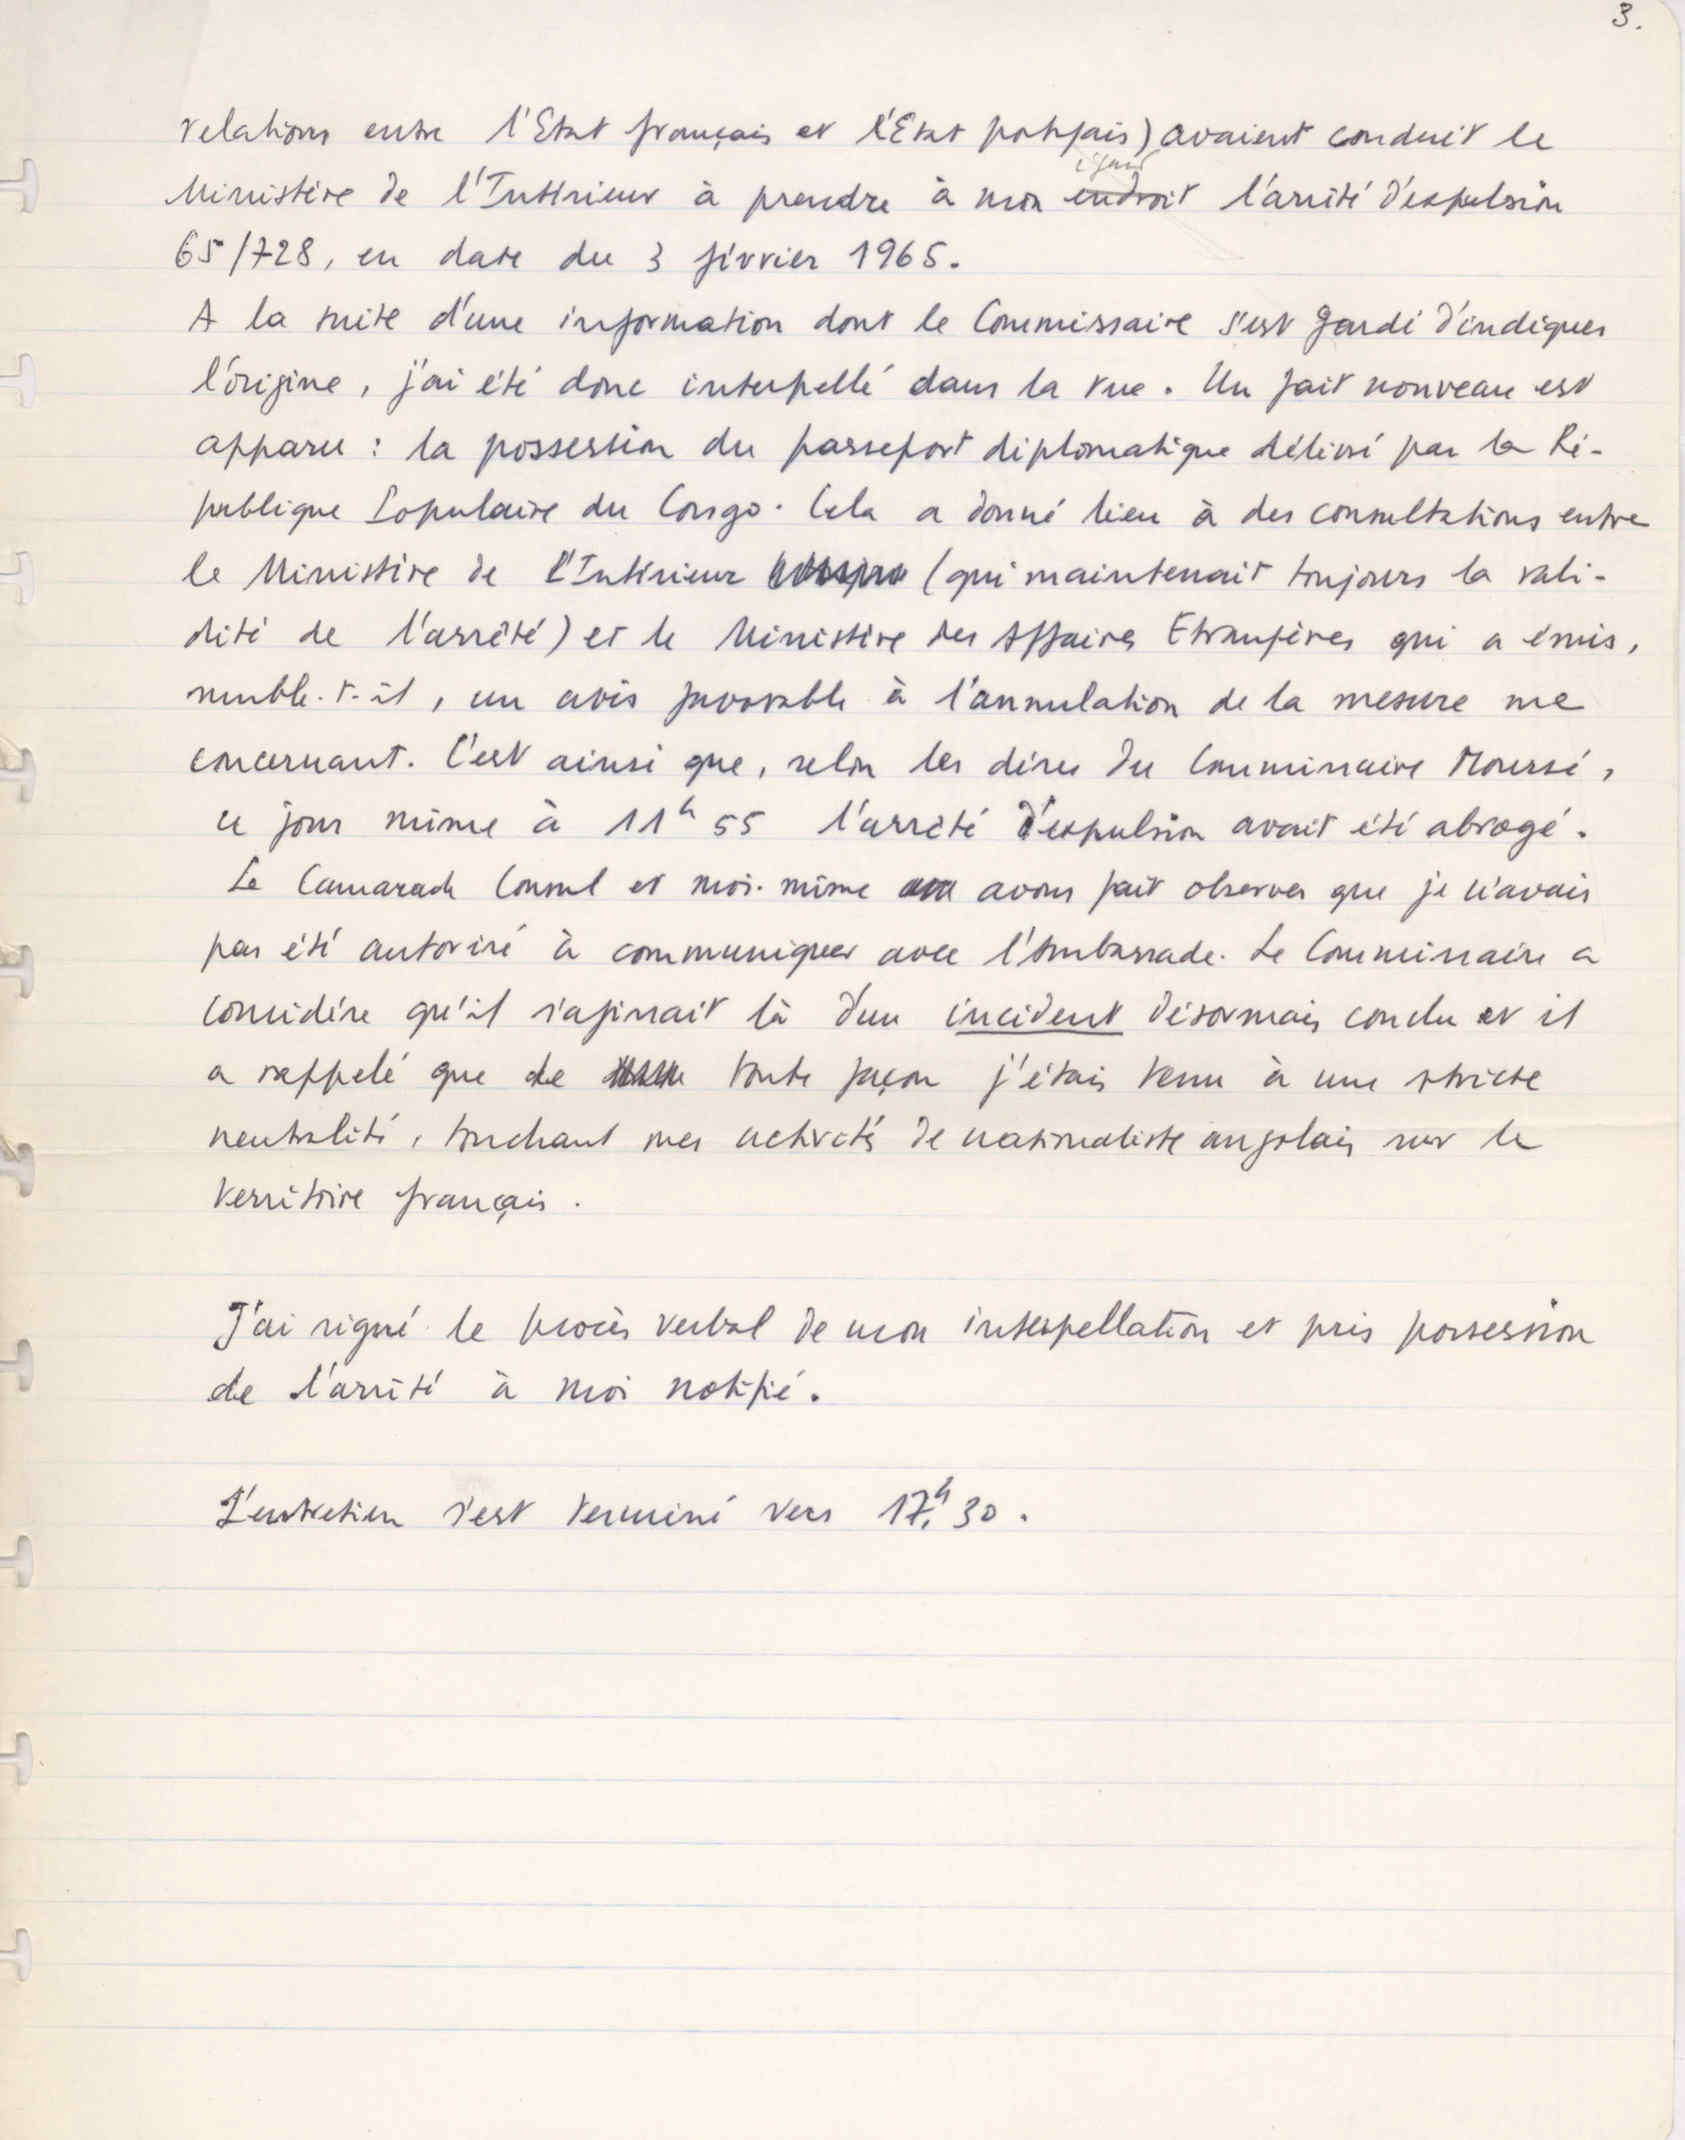 3.
relations entre l'Etat français et l'Etat portugais) avaient conduit le
égard
Ministère de l'Intérieur à prendre à mon endroit l'arrêté d'expulsion
65/728, en date du 3 février 1965.
A la suite d'une information dont le Commissaire s'est gardé d'indiquer
l'origine, j'ai été donc interpellé dans la rue. Un fait nouveau est
apparu : la possession du passeport diplomatique délivré par la Ré-
publique Populaire du Congo. Cela a donné lieu à des consultations entre
le Ministère de l'Intérieur (qui maintenait toujours la vali-
dité de l'arrêté) et le Ministère des Affaires Etrangères qui a émis,
semble-t-il, un avis favorable à l'annulation de la mesure me
concernant. C'est ainsi que, selon les dires du Commissaire Moursé,
ce jour même à 11h 55 l'arrêté d'expulsion avait été abrogé.
Le Camarade Consul et moi-même avons fait observer que je n'avais
pas été autorisé à communiquer avec l'Ambassade. Le Commissaire a
considéré qu'il s'agissait là d'un incident désormais conclu et il
a rappelé que de toute façon j'étais tenu à une stricte
neutralité, touchant mes activités de nationaliste angolais sur le
territoire français.
J'ai signé le procès verbal de mon interpellation et pris possession
de l'arrêté à moi notifié.
L'entretien s'est terminé vers 17h 30.